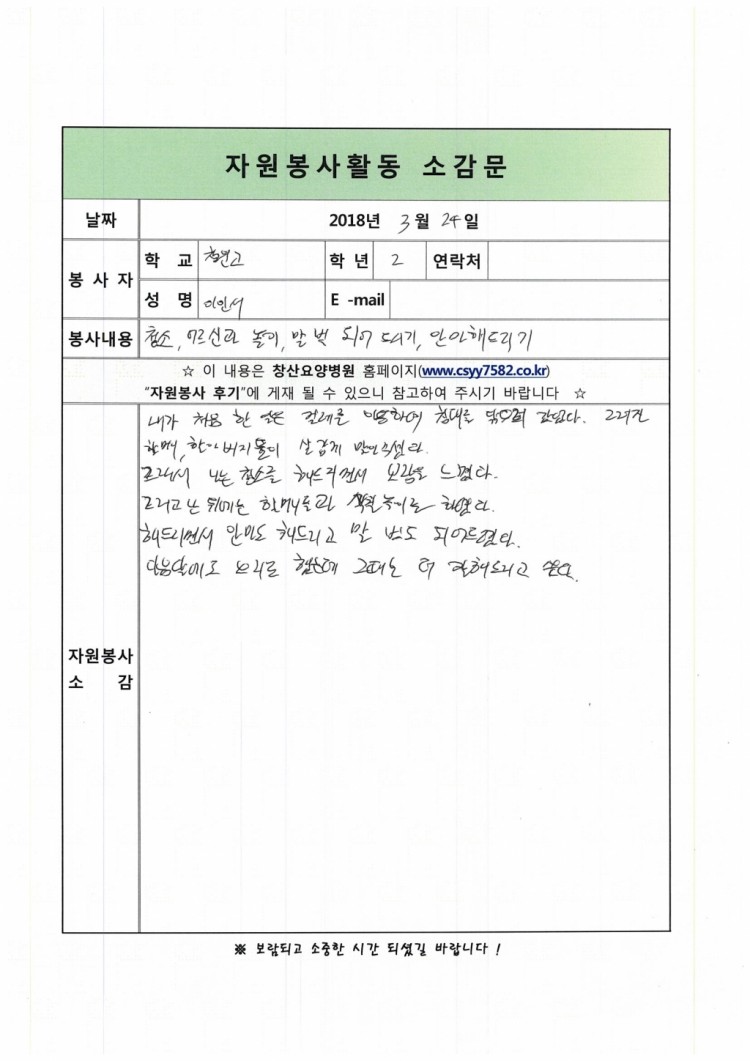 자원봉사활동 소감문
날짜 2018년 3월 24일
봉사자 학 교 창연고 학 년 2 연락처
성 명 이인서 E -mail
봉사내용 청소, 어르신과 놀이, 말 벗 되어 드리기, 안마해드리기
☆ 이 내용은 창산요양병원 홈페이지(www.csyy7582.co.kr)
"자원봉사 후기"에 게재 될 수 있으니 참고하여 주시기 바랍니다 ☆
자원봉사
소 감
내가 처음 한 일은 걸레를 이용하여 침대를 닦으며 갔었다. 그러자
할머니, 할아버지들이 살갑게 맞아주셨다.
그래서 나는 청소를 해드리면서 보람을 느꼈다.
그리고 난 뒤에는 할머니들과 색칠놀이를 하였다.
해드리면서 안마도 해드리고 말 벗도 되어드렸다.
다음달에도 오기로 했는데 그때는 더 잘해드리고 싶다.
※ 보람되고 소중한 시간 되셨길 바랍니다 !